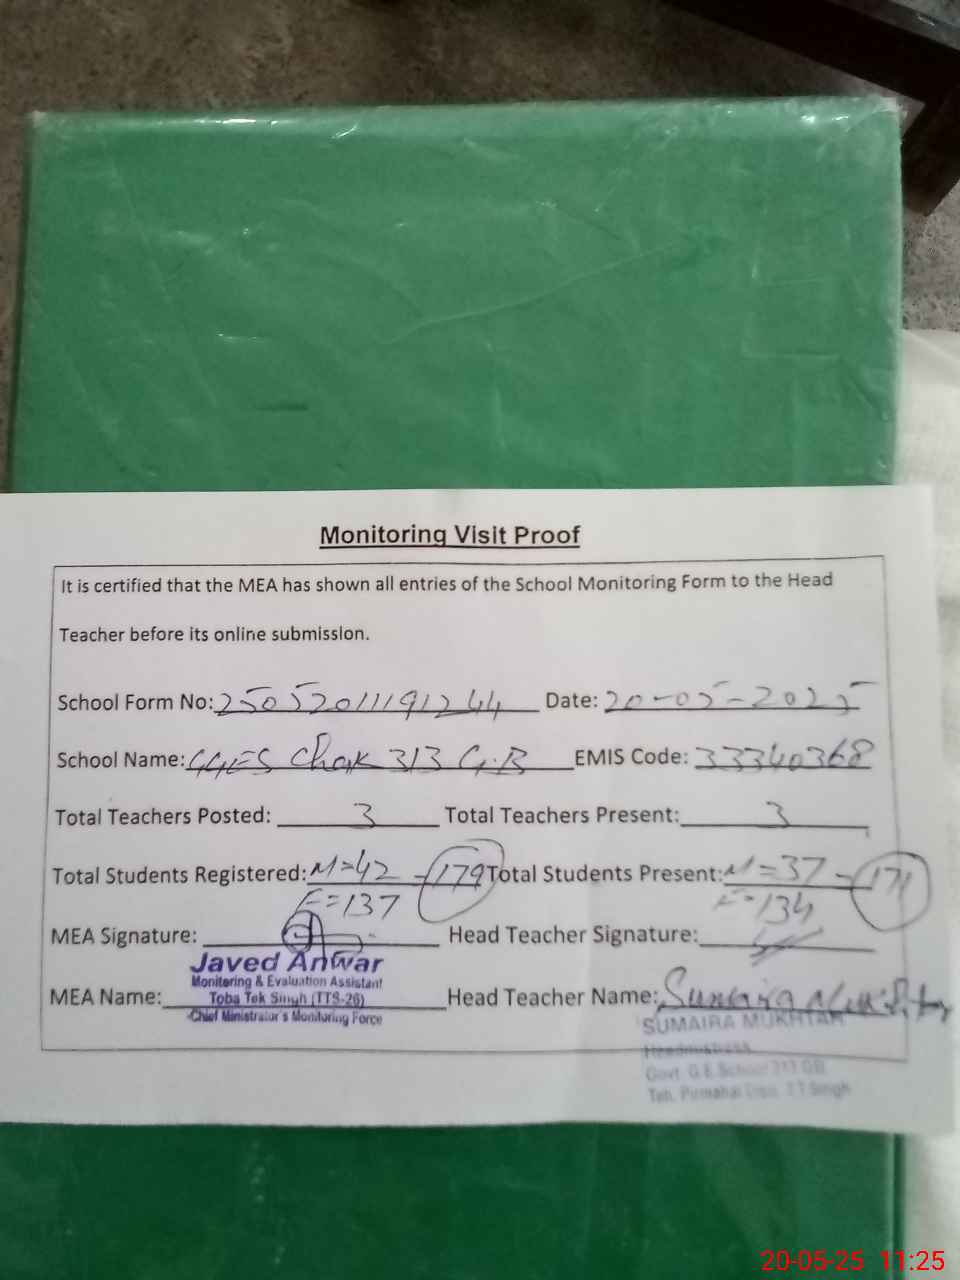 Monitoring Visit Proof
It is certified that the MEA has shown all entries of the School Monitoring Form to the Head
Teacher before its online submission.
School Form No: 25052011191244 Date: 20-05-2025
School Name: GGES Chak 313 G.B EMIS Code: 33340368
Total Teachers Posted: 3 Total Teachers Present: 3
Total Students Registered: M=42 - 179 Total Students Present: M=37 - 171
F=137 F=134
MEA Signature: Head Teacher Signature:
Javed Anwar
Monitoring & Evaluation Assistant
MEA Name: Toba Tek Singh (TTS-26) Head Teacher Name: Sumaira Mukhtar
Chief Ministrator's Monitoring Force
SUMAIRA MUKHTAR
Headmistress
Govt. G.E. School 313 GB
Teh. Pirmahal Distt. T.T.Singh
20-05-25 11:25